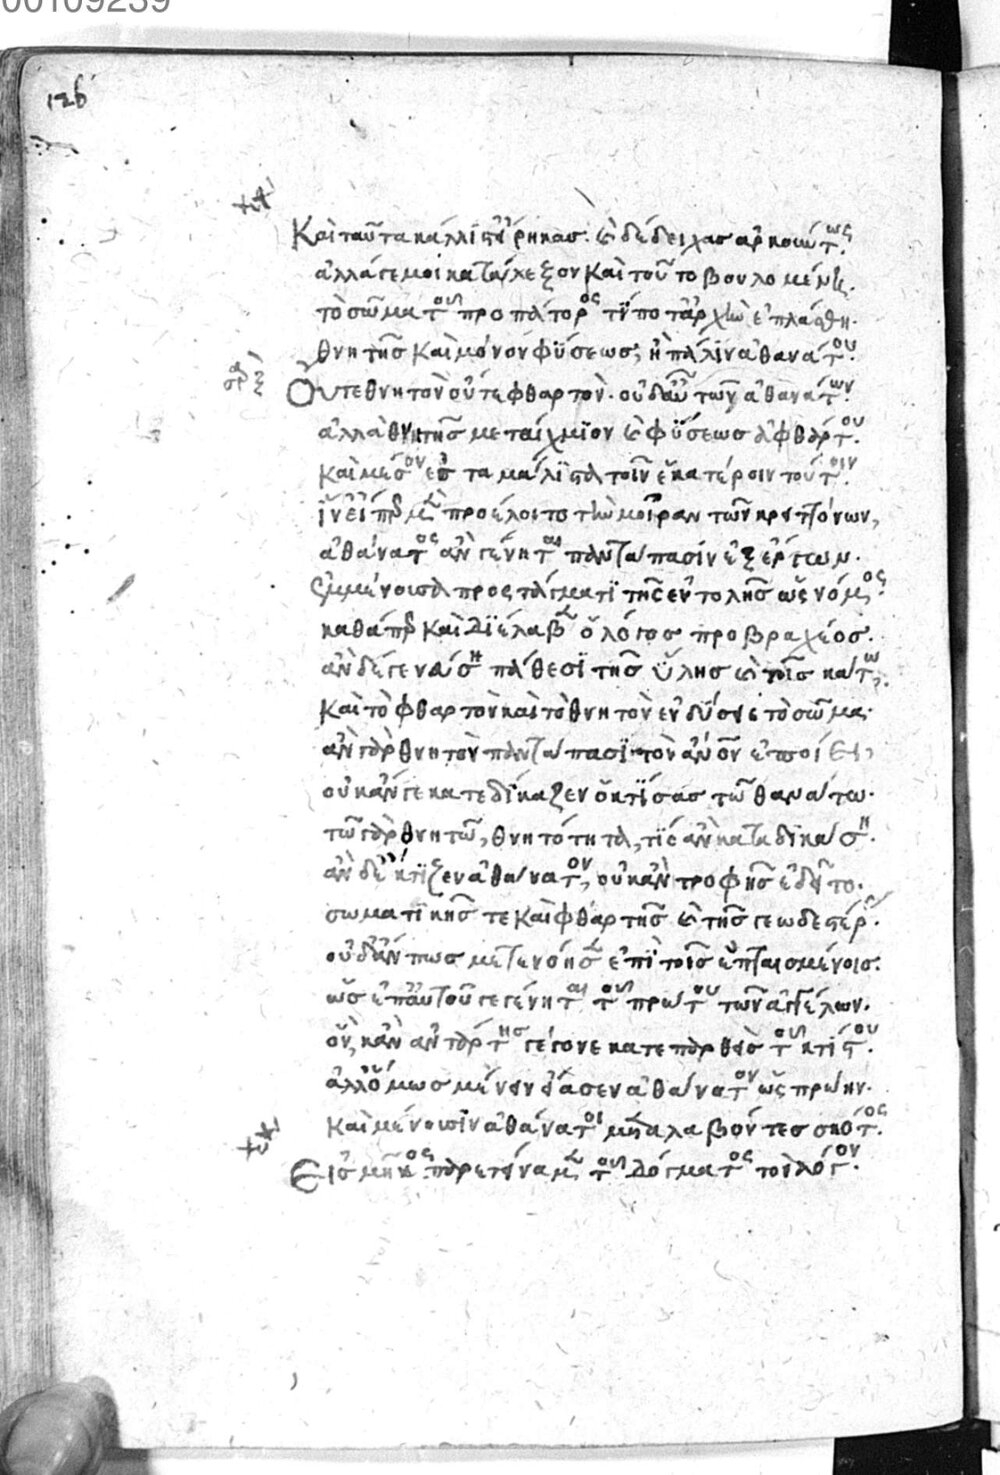 00109239
126
Καὶ ταῦτα κάλλιστ' εἴρηκας· καὶ δέδειχας ἀρκούντως·
ἀλλά γέ μοι κατάλεξον καὶ τοῦτο βουλομένῳ·
τὸ σῶμα τοῦ προπάτορος τίποτ' ἀρχὴν ἐπλάσθη·
θνητῆς καὶ μόνον φύσεως; ἢ πάλιν ἀθανάτου·
Οὔτε θνητὸν οὔτε φθαρτὸν· οὐδ' αὖ τῶν ἀθανάτων·
ἀλλὰ θνητῆς μεταίχμιον καὶ φύσεως ἀφθάρτου·
καὶ μέσον ἐς τὰ μάλιστα τοῖν ἑκατέροιν τούτοιν·
ἵν' εἴπερ μὲν προέλοιτο τὴν μοῖραν τῶν κρειττόνων,
ἀθάνατος ἂν γένηται παντάπασιν ἐξ ἔργων·
ἐμμένοις τὰ προστάγματι τῆς ἐντολῆς ὡς νόμος·
καθάπερ καὶ διέλαβεν ὁ λόγος πρὸ βραχέος·
ἂν δέ γε νεύσῃ πάθεσι τῆς ὕλης καὶ τοῖς κάτω,
καὶ τὸ φθαρτὸν καὶ τὸ θνητὸν ἐνδύσει τὸ σῶμα·
ἂν γὰρ θνητὸν παντάπασι τὸν ἄνον ἐποίει,
οὐκ ἄν γε κατεδίκαζεν ὁ κτίσας τῷ θανάτῳ·
τῶ γὰρ θνητῶ, θνητότητα, τίς ἂν καταδικάσῃ·
ἂν δ' ἔκτιζεν ἀθάνατον, οὐκ ἂν τροφῆς ἐδεῖτο·
σωματικῆς τε καὶ φθαρτῆς καὶ τῆς γεωδεστέρας·
οὐδ' ἄν πως μετενόησεν ἐπὶ τοῖς ἐπταισμένοις·
ὡς ἐπ' αὐτοῦ γεγένηται τοῦ πρώτου τῶν ἀγγέλων·
ὃς, κἂν ἀντάρτης γέγονε κατεπαρθεὶς τοῦ κτίστου·
ἀλλ' ὅμως μένειν εἴασεν ἀθάνατον ὡς πρώην·
καὶ μένουσιν ἀθάνατοι μεταλαβόντες σκότος·
Εἰς μῆκος παρετείναμεν τοῦ δόγματος τὸν λόγον·